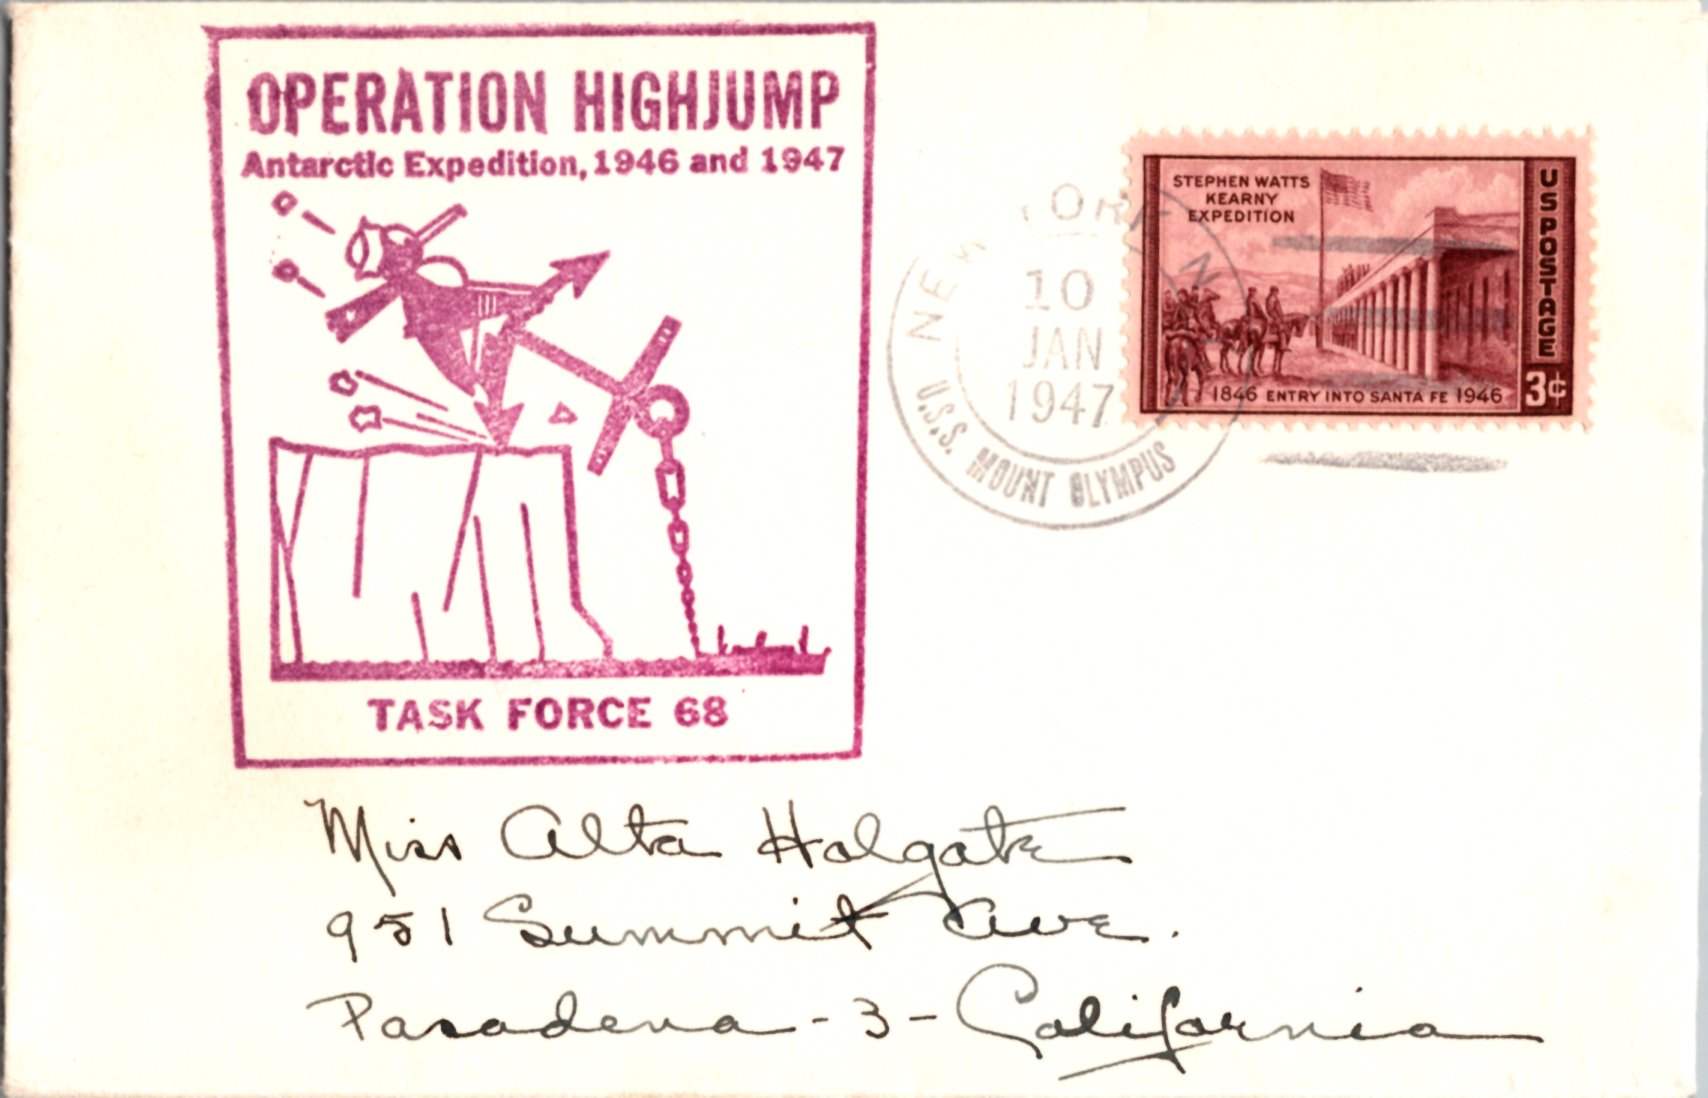 OPERATION HIGHJUMP
Antarctic Expedition, 1946 and 1947
TASK FORCE 68
NEW YORK N
10
JAN
1947
U.S.S. MOUNT OLYMPUS
STEPHEN WATTS
KEARNY
EXPEDITION
U S POSTAGE
1846 ENTRY INTO SANTA FE 1946
3¢
Miss Alta Holgate
951 Summit Ave.
Pasadena - 3 - California